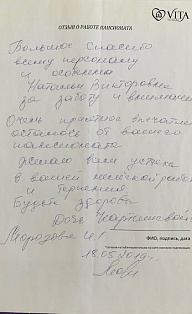 VITA
ОТЗЫВ О РАБОТЕ ПАНСИОНАТА
Большое спасибо
всему персоналу
и особенно
Наталье Викторовне
за заботу и внимание
Очень приятное впечатле
осталось от вашего
пансионата
желаю вам успеха
в вашей нелегкой работе
и терпения.
Будьте здоровы
Дочь
Морозова
ФИО, подпись, дата
18.05.2019г.